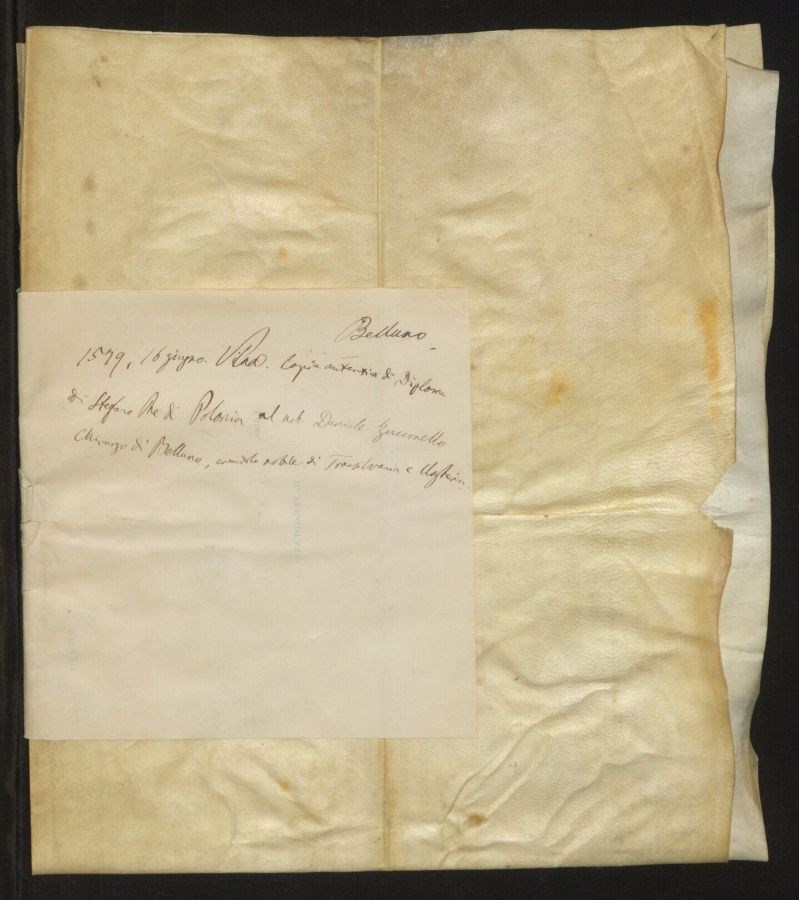 Belluno
1579, 16 giugno. Vilna. Copia autentica di Diploma
di Stefano Re di Polonia al nob Daniele Zucconello
chirurgo di Belluno, creandolo nobile di Transilvania e Ungheria.